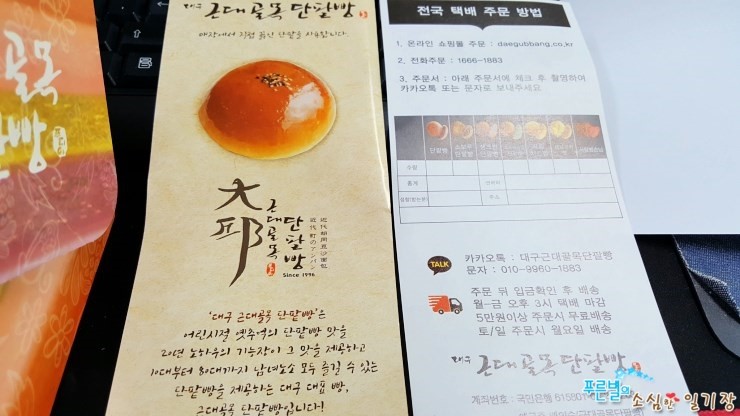 골목
단팥빵
대구 근대골목단팥빵
매장에서 직접 끓인 단팥을 사용합니다.
大邱
근대골목
단팥빵
近代胡同豆沙面包
近代町のアンパン
Since 1996
'대구 근대골목 단팥빵'은
어린시절 옛추억의 단팥빵 맛을
20년 노하우의 기능장이 그 맛을 재현하고
10대부터 80대까지 남녀노소 모두 즐길 수 있는
단팥빵을 제공하는 대구 대표 빵,
근대골목 단팥빵입니다!
전국 택배 주문 방법
1. 온라인 쇼핑몰 주문 : daegubbang.co.kr
2. 전화주문 : 1666-1883
3. 주문서 : 아래 주문서에 체크 후 촬영하여
카카오톡 또는 문자로 보내주세요.
단팥빵
단팥빵
단팥빵
수량
합계
연락처
주소
TALK
카카오톡 : 대구근대골목단팥빵
문자 : 010-9960-1883
주문 뒤 입금확인 후 배송
월-금 오후 3시 택배 마감
5만원이상 주문시 무료배송
토/일 주문시 월요일 배송
대구 근대골목단팥빵
계좌번호 : 국민은행
푸른별의 소심한 일기장